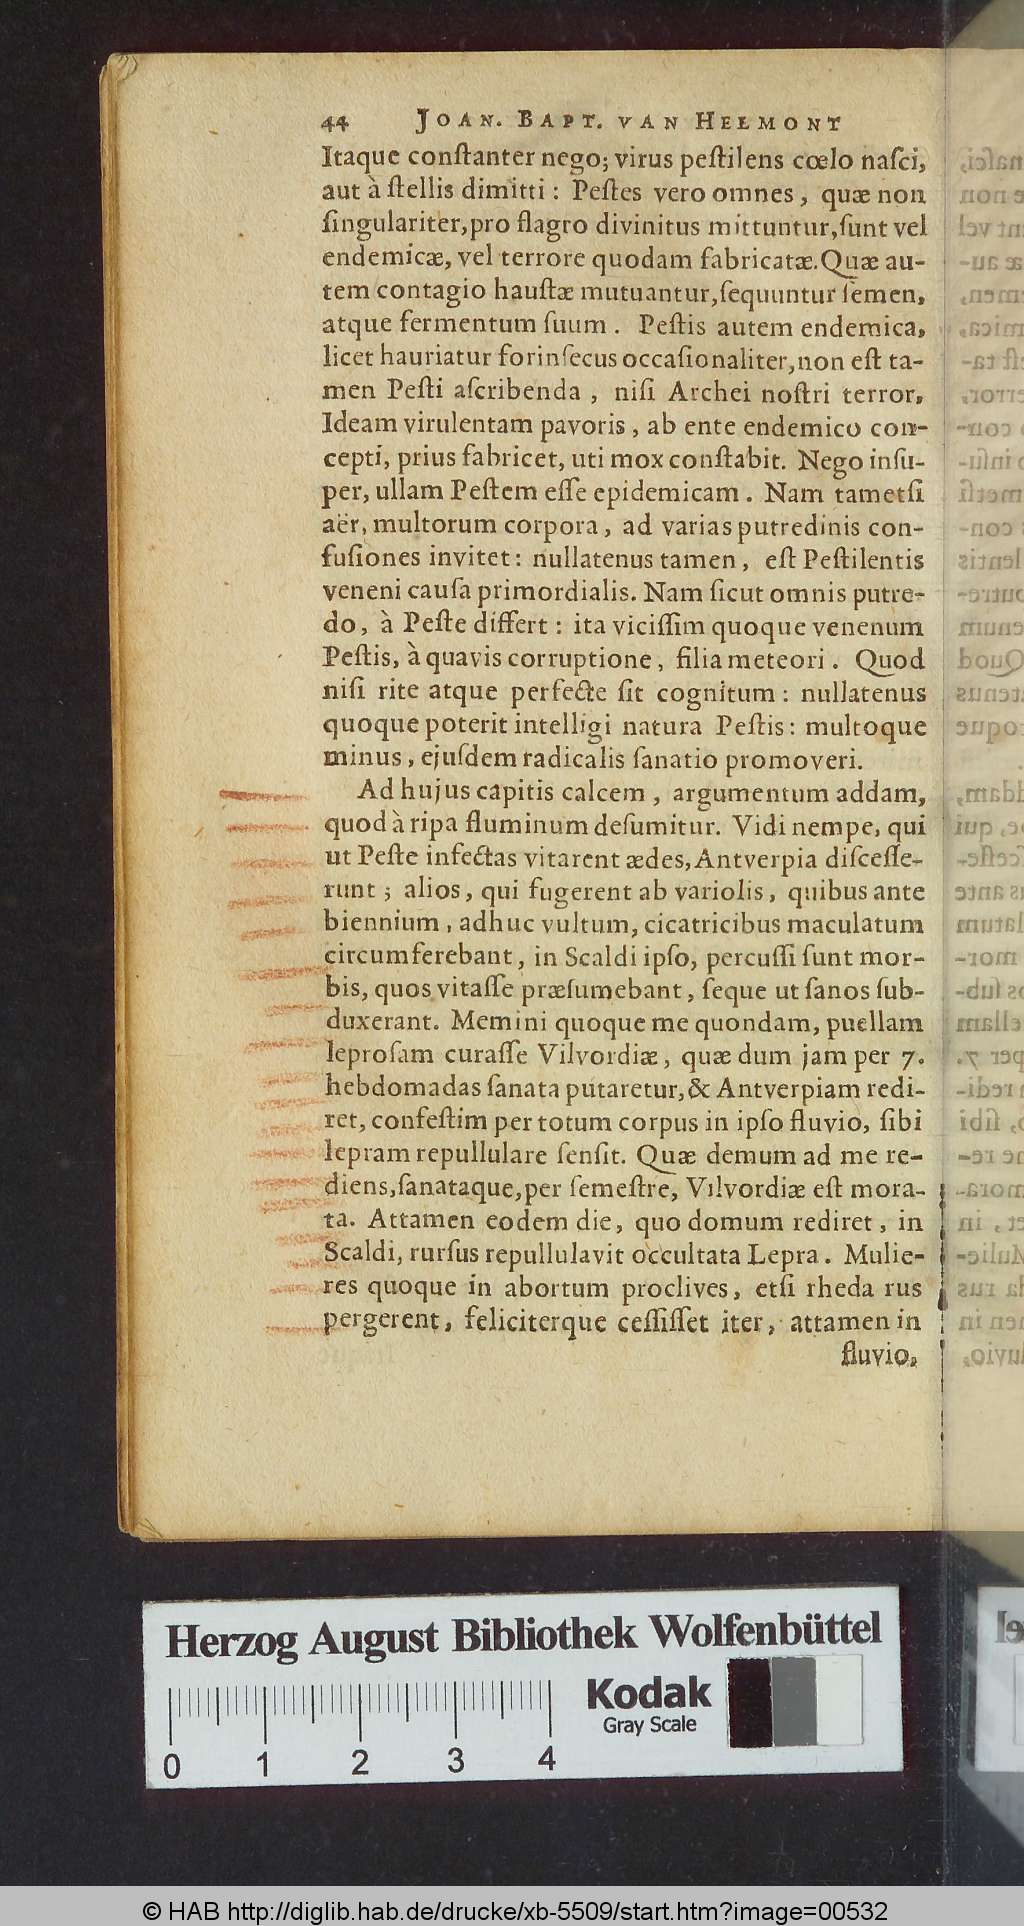 44 JOAN. BAPT. VAN HELMONT
Itaque conſtanter nego; virus peſtilens cœlo naſci,
aut à ſtellis dimitti : Peſtes vero omnes, quæ non
ſingulariter, pro flagro divinitus mittuntur, ſunt vel
endemicæ, vel terrore quodam fabricatæ. Quæ au-
tem contagio hauſtæ mutuantur, ſequuntur ſemen,
atque fermentum ſuum. Peſtis autem endemica,
licet hauriatur forinſecus occaſionaliter, non eſt ta-
men Peſti aſcribenda, niſi Archei noſtri terror,
Ideam virulentam pavoris, ab ente endemico con-
cepti, prius fabricet, uti mox conſtabit. Nego inſu-
per, ullam Peſtem eſſe epidemicam. Nam tametſi
aër, multorum corpora, ad varias putredinis con-
fuſiones invitet : nullatenus tamen, eſt Peſtilentis
veneni cauſa primordialis. Nam ſicut omnis putre-
do, à Peſte differt : ita viciſſim quoque venenum
Peſtis, à quavis corruptione, filia meteori. Quod
niſi rite atque perfecte ſit cognitum : nullatenus
quoque poterit intelligi natura Peſtis : multoque
minus, ejuſdem radicalis ſanatio promoveri.
Ad hujus capitis calcem, argumentum addam,
quod à ripa fluminum deſumitur. Vidi nempe, qui
ut Peſte infectas vitarent ædes, Antverpia diſceſſe-
runt ; alios, qui fugerent ab variolis, quibus ante
biennium, adhuc vultum, cicatricibus maculatum
circumferebant, in Scaldi ipſo, percuſſi ſunt mor-
bis, quos vitaſſe præſumebant, ſeque ut ſanos ſub-
duxerant. Memini quoque me quondam, puellam
leproſam curaſſe Vilvordiæ, quæ dum jam per 7.
hebdomadas ſanata putaretur, & Antverpiam redi-
ret, confeſtim per totum corpus in ipſo fluvio, ſibi
lepram repullulare ſenſit. Quæ demum ad me re-
diens, ſanataque, per ſemeſtre, Vilvordiæ eſt mora-
ta. Attamen eodem die, quo domum rediret, in
Scaldi, rurſus repullulavit occultata Lepra. Mulie-
res quoque in abortum proclives, etſi rheda rus
pergerent, feliciterque ceſſiſſet iter, attamen in
fluvio,
Herzog August Bibliothek Wolfenbüttel
Kodak
Gray Scale
0 1 2 3 4
© HAB http://diglib.hab.de/drucke/xb-5509/start.htm?image=00532